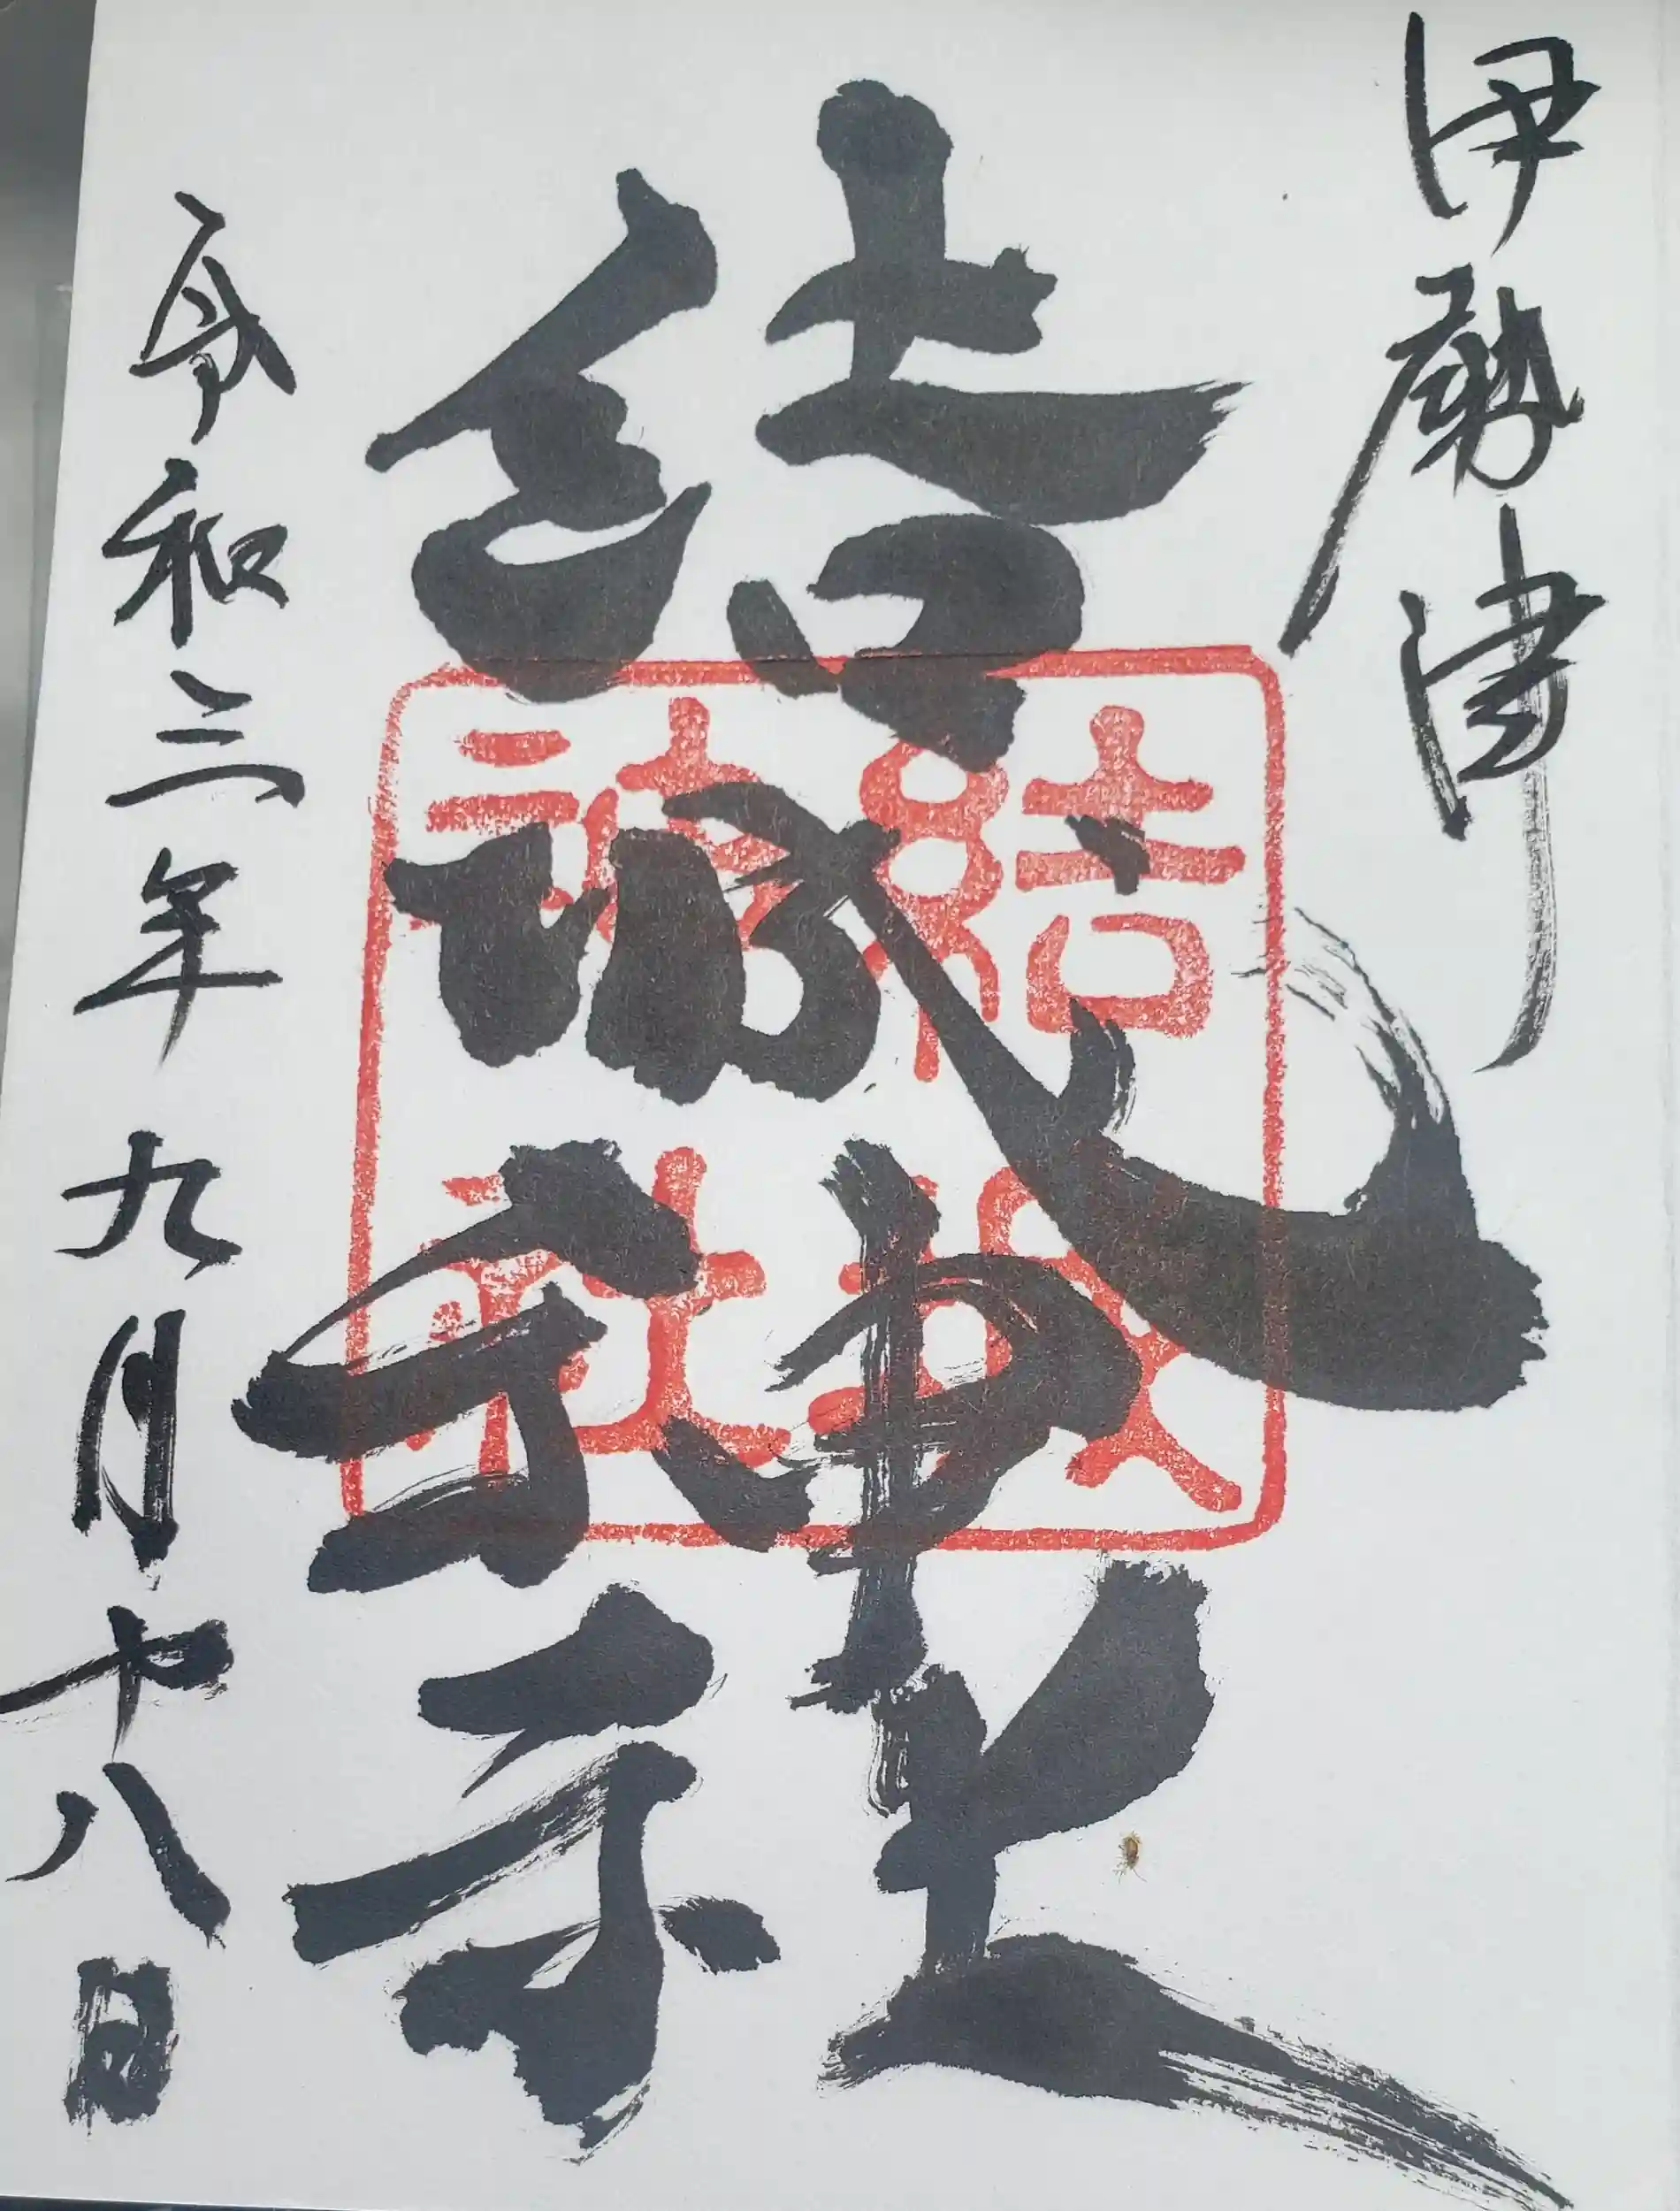 伊勢津
結城神社
結城
神社
令和三年九月十八日